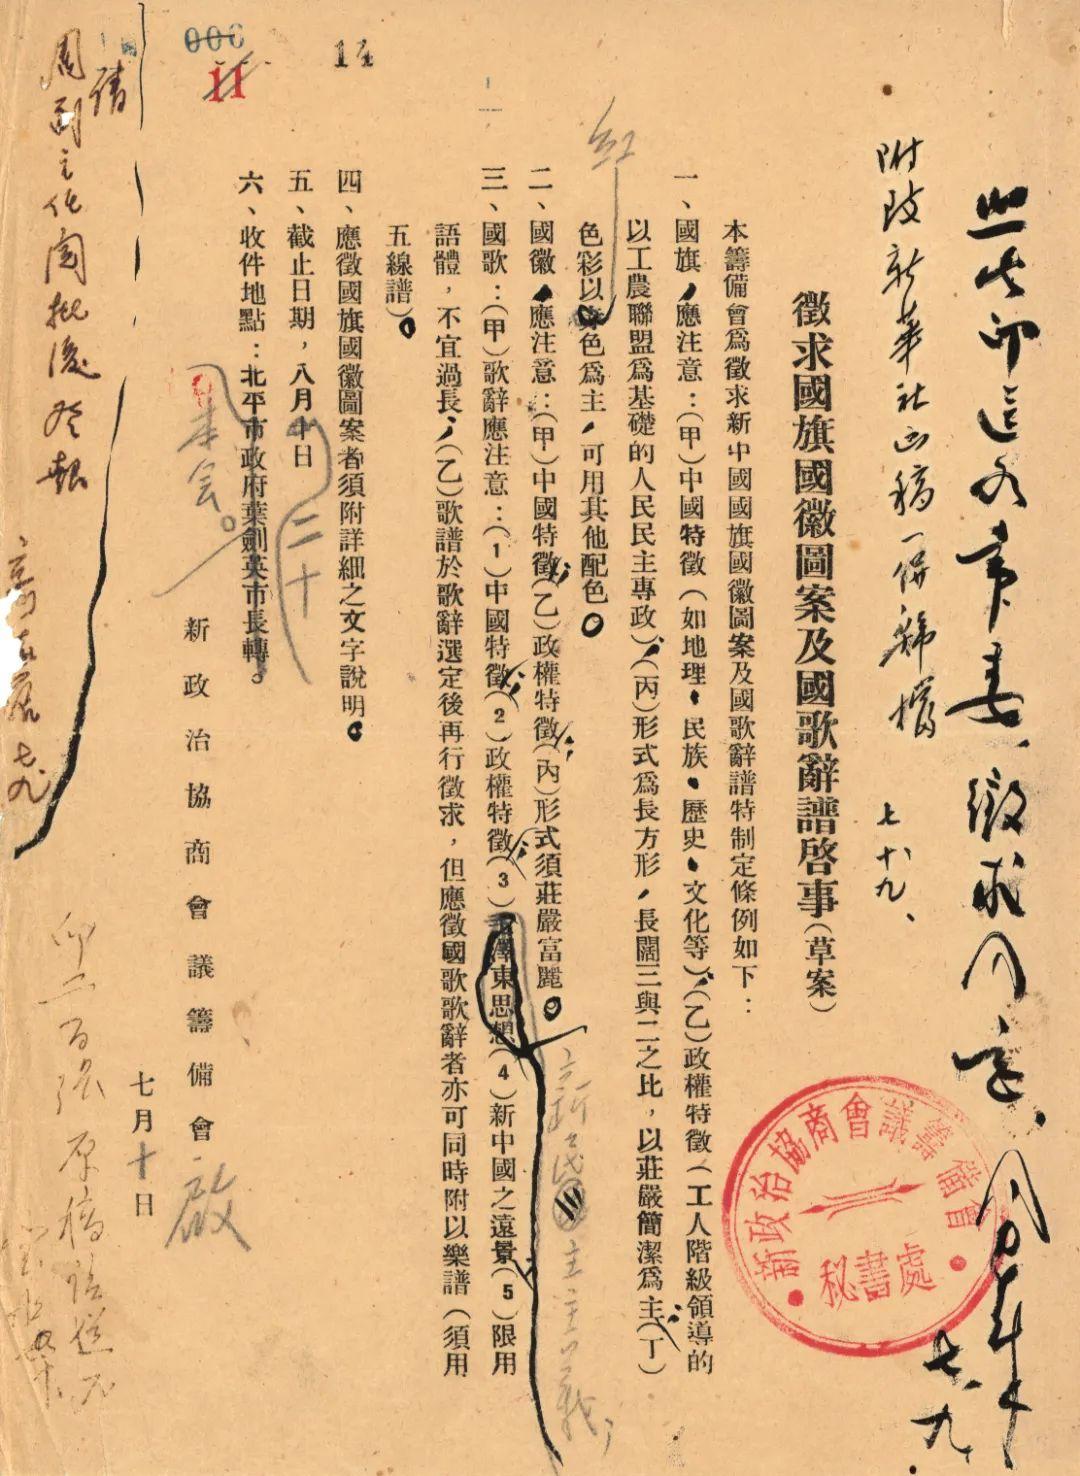 照此印送各常委，徵求同意，
七、九
附改新華社正稿一併歸檔
七、十九、
徵求國旗國徽圖案及國歌辭譜啓事(草案)
本籌備會爲徵求新中國國旗國徽圖案及國歌辭譜特制定條例如下：
一、國旗，應注意：(甲)中國特徵(如地理、民族、歷史、文化等)；(乙)政權特徵(工人階級領導的
以工農聯盟爲基礎的人民民主專政)；(丙)形式爲長方形，長闊三與二之比，以莊嚴簡潔爲主；(丁)
色彩以 色爲主，可用其他配色。
紅
二、國徽，應注意：(甲)中國特徵；(乙)政權特徵；(丙)形式須莊嚴富麗。
三、國歌：(甲)歌辭應注意：(1)中國特徵；(2)政權特徵；(3)毛澤東思想(4)新中國之遠景；(5)限用
新民主主義；
語體，不宜過長；(乙)歌譜於歌辭選定後再行徵求，但應徵國歌歌辭者亦可同時附以樂譜(須用
五線譜)。
四、應徵國旗國徽圖案者須附詳細之文字說明。
五、截止日期，八月十日
二十
六、收件地點：北平市政府葉劍英市長轉。
本會。
新政治協商會議籌備會 啟
七月十日
新政治協商會議籌備會
秘書處
請
周副主化閱批後 報
七九
印二百張原稿請送
006
11
14